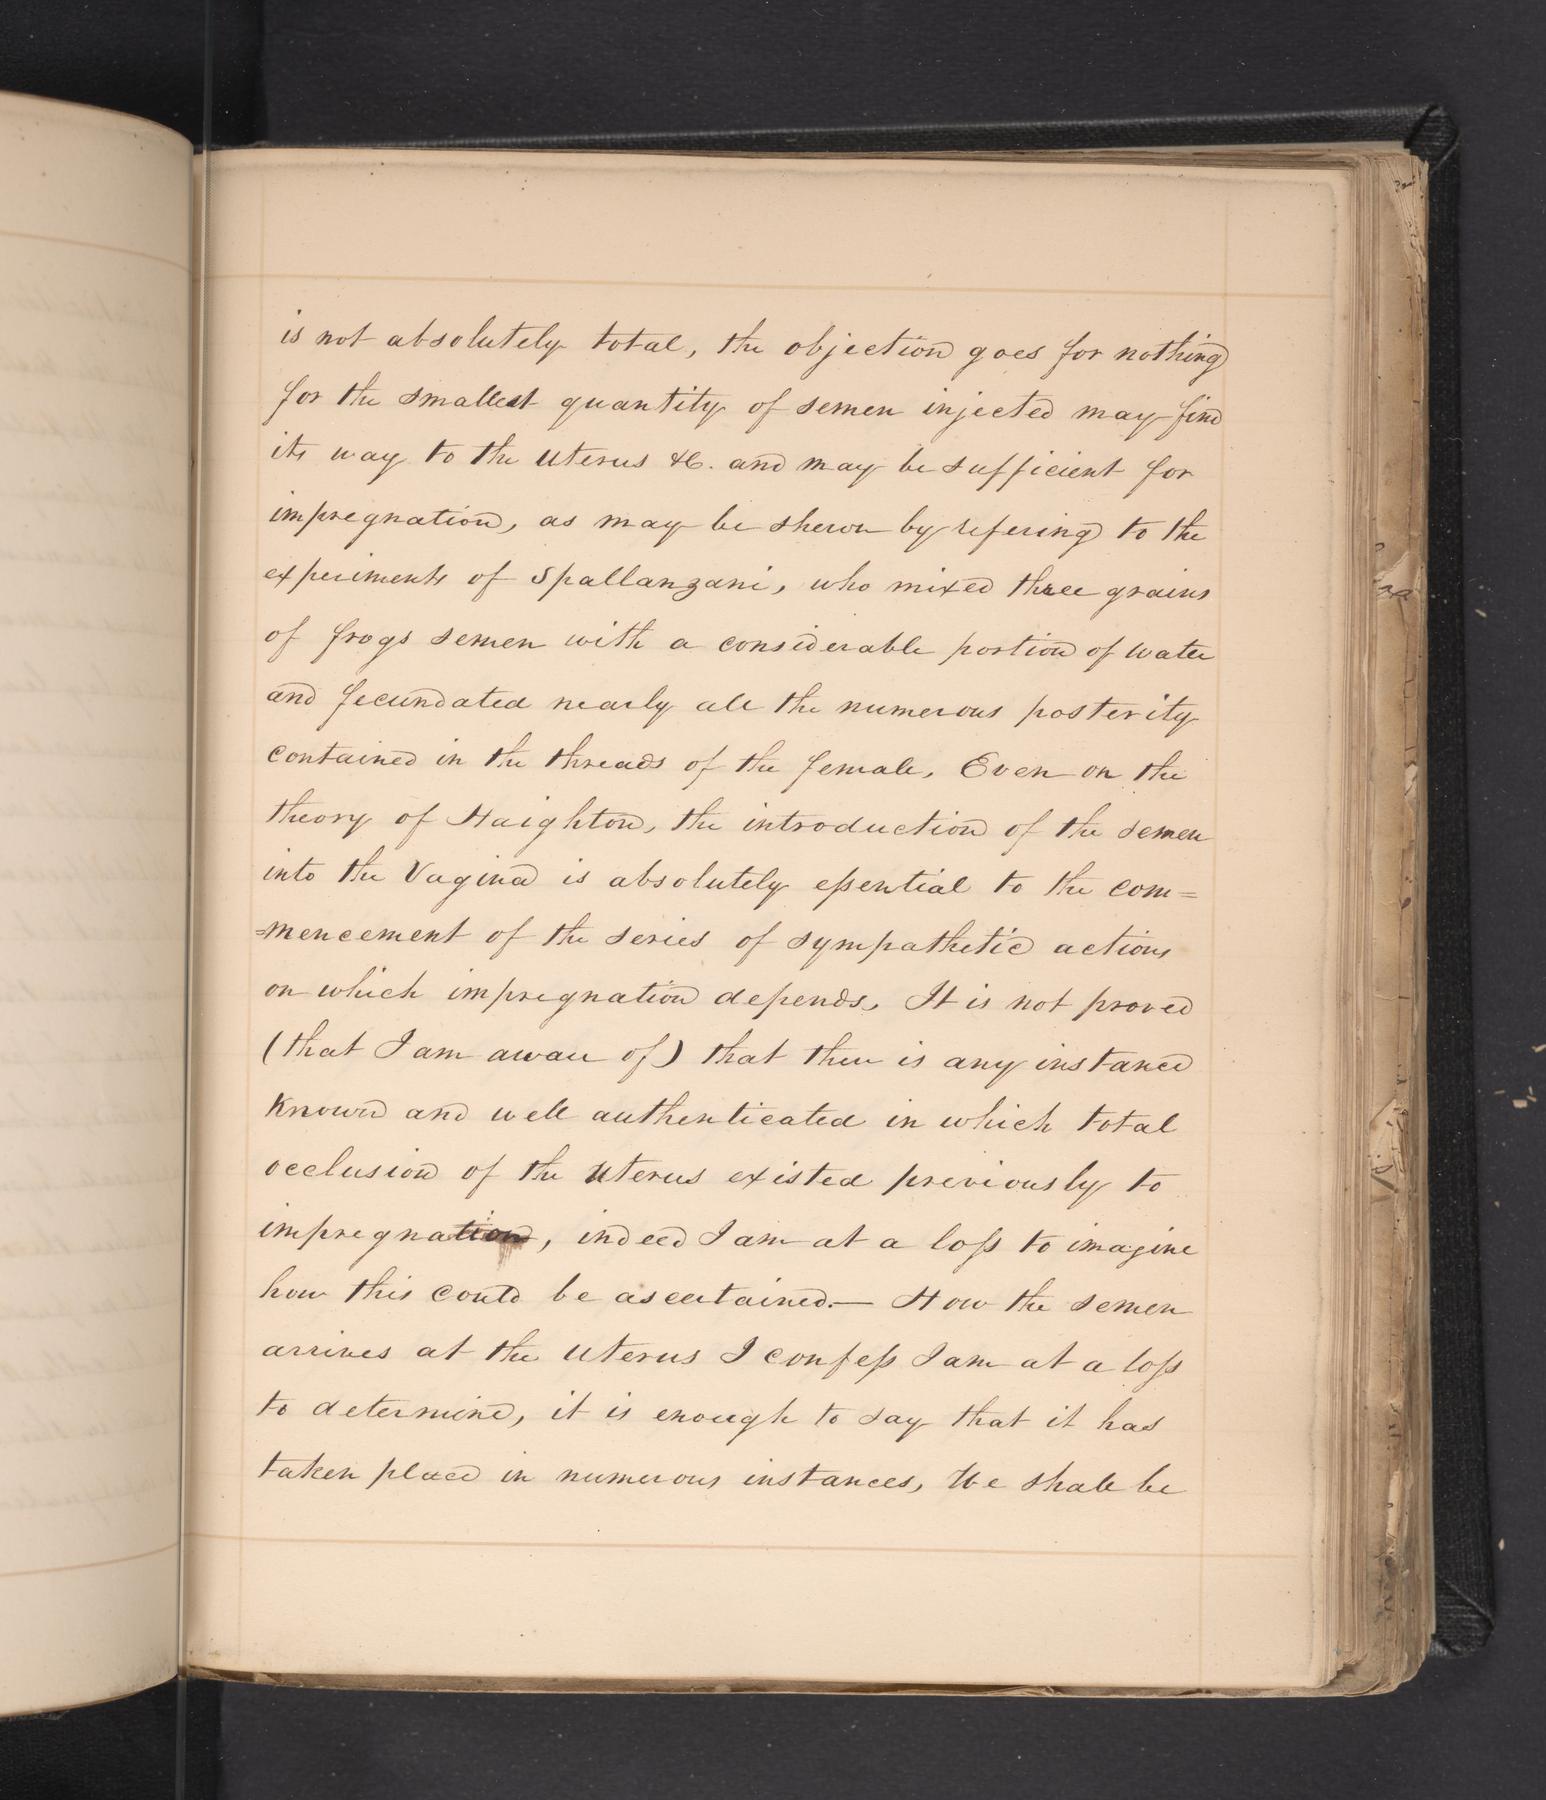 is not absolutely total, the objection goes for nothing
for the smallest quantity of semen injected may find
its way to the uterus &c. and may be sufficient for
impregnation, as may be shewn by refering to the
experiments of Spallanzani, who mixed three grains
of frogs semen with a considerable portion of water
and fecundated nearly all the numerous posterity
contained in the threads of the female. Even on the
theory of Haighton, the introduction of the semen
into the Vagina is absolutely eſsential to the com=
=mencement of the series of sympathetic actions
on which impregnation depends. It is not proved
(that I am aware of) that there is any instance
known and well authenticated in which total
occlusion of the uterus existed previously to
impregnation, indeed I am at a loſs to imagine
how this could be ascertained.— How the semen
arrives at the uterus I confeſs I am at a loſs
to determine, it is enough to say that it has
taken place in numerous instances, We shall be